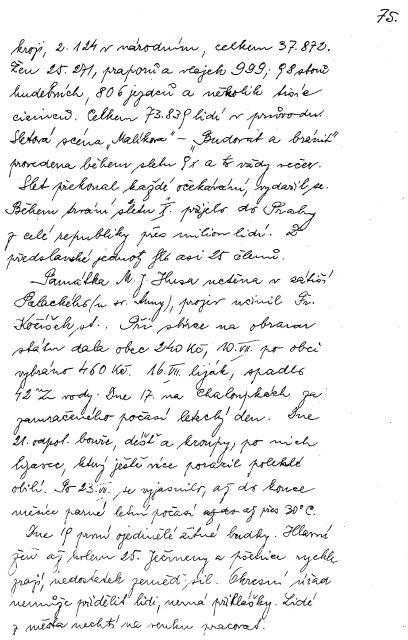 75.
kroji, 2.124 v národním, celkem 37.872.
Žen 25.271, praporů a vlajek 999, 98
hudebních, 806 jezdců a několik tisíc
cizinců. Celkem 73.839 lidí v průvodu.
Sletová scéna „Malíkova" – „Budovat a bránit"
provedena během sletu 9x a to vždy večer.
Slet překonal každé očekávání, vydařil se.
Během trvání sletu X. přijelo do Prahy
z celé republiky přes milion lidí. Z
předslavské jednoty šlo asi 25 členů.
Památka M. J. Husa uctěna v zátiší
Palackého (u sv. Anny), projev učinil Fr.
Kočíšek st.. Při sbírce na obranu
státu dala obec 240 Kč, 10. VII. po obci
vybráno 460 Kč. 16. VII. liják, spadlo
42 vody. Dne 17. na Chaloupkách za
zamračeného počasí letecký den. Dne
21. odpol. bouře, déšť a kroupy, po nich
lijavec, který ještě více porazil polehlé
obilí. Po 23. VII. se vyjasnilo, až do konce
měsíce parné letní počasí až do až přes 30°C.
Dne 19 první ojedinělé žitné budky. Hlavní
žeň až kolem 25. Ječmeny a pšenice rychle
zrají, nedostatek zeměd. sil. Okresní úřad
nemůže přidělit lidi, nemá přihlášky. Lidé
z města nechtí na venku pracovat.